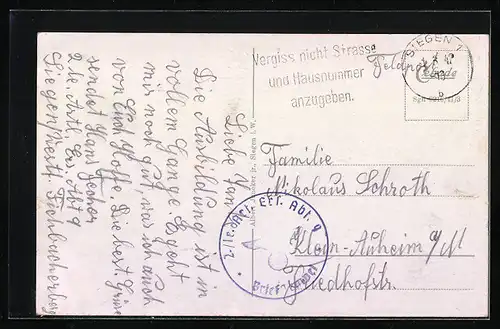 Vergiss nicht Strasse
und Hausnummer
anzugeben.
SIEGEN 1
Feldpost
b
Liebe Fam.
Die Ausbildung ist in
vollem Gange. Es geht
mir noch gut, was ich auch
von Euch hoffe. Die best. Grüße
sendet Hans Jecher
2. le. Artl. Ers. Abt. 9
Siegen/Westf. Fischbacherberg
Familie
Nikolaus Schroth
Klein-Auheim a/M
Friedhofstr.
2./le. Artl. Ers. Abt. 9
Briefstempel